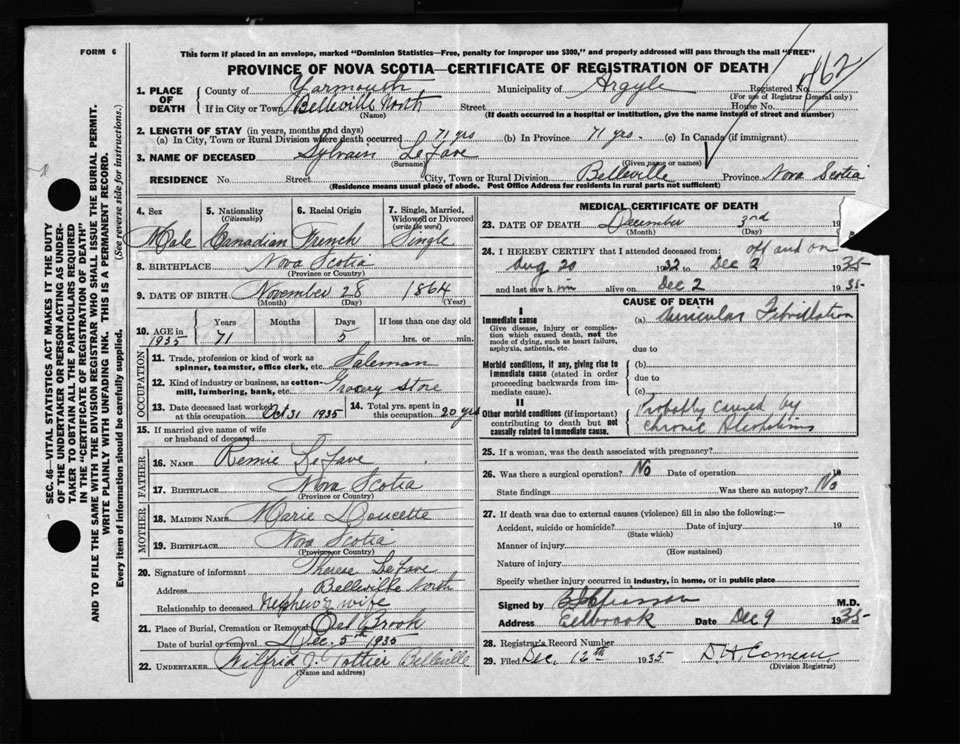 FORM 6
This form if placed in an envelope, marked "Dominion Statistics—Free, penalty for improper use $300," and properly addressed will pass through the mail "FREE"
PROVINCE OF NOVA SCOTIA—CERTIFICATE OF REGISTRATION OF DEATH
1. PLACE OF DEATH
County of Yarmouth Municipality of Argyle Registered No.
(For use of Registrar General only)
If in City or Town Belleville North Street House No.
(Name) (If death occurred in a hospital or institution, give name instead of street and number)
2. LENGTH OF STAY (in years, months and days)
(a) In City, Town or Rural Division where death occurred 71 yrs (b) In Province 71 yrs. (c) In Canada (if immigrant)
3. NAME OF DECEASED Sylvain LeFave
(Surname) (Given name or names)
RESIDENCE No. Street City, Town or Rural Division Belleville Province Nova Scotia
(Residence means usual place of abode. Post Office Address for residents in rural parts not sufficient)
4. Sex Male
5. Nationality (Citizenship) Canadian
6. Racial Origin French
7. Single, Married, Widowed or Divorced (write the word) Single
8. BIRTHPLACE Nova Scotia
(Province or Country)
9. DATE OF BIRTH November 28 1864
(Month) (Day) (Year)
10. AGE in 1935 Years 71 Months Days 5 If less than one day old hrs. or min.
OCCUPATION
11. Trade, profession or kind of work as spinner, teamster, office clerk, etc. Saleman
12. Kind of industry or business, as cotton-mill, lumbering, bank, etc. Grocery Store
13. Date deceased last worked at this occupation Oct 31 1935
14. Total yrs. spent in this occupation 20 yrs
15. If married give name of wife or husband of deceased
FATHER
16. NAME Remie LeFave
17. BIRTHPLACE Nova Scotia
(Province or Country)
MOTHER
18. MAIDEN NAME Marie Doucette
19. BIRTHPLACE Nova Scotia
(Province or Country)
20. Signature of informant Therese LeFave
Address Belleville North
Relationship to deceased Nephew's wife
21. Place of Burial, Cremation or Removal Eel Brook
Date of burial or removal Dec. 5th 1935
22. UNDERTAKER Wilfrid J. Pottier Belleville
(Name and address)
MEDICAL CERTIFICATE OF DEATH
23. DATE OF DEATH December 3rd 19
(Month) (Day)
24. I HEREBY CERTIFY that I attended deceased from: off and on
Aug 20 1932 to Dec 2 1935
and last saw him alive on Dec 2 1935
CAUSE OF DEATH
I
Immediate cause
Give disease, injury or complication which caused death, not the mode of dying, such as heart failure, asphyxia, asthenia, etc.
(a) Auricular Fibrillation
due to
Morbid conditions, if any, giving rise to immediate cause (stated in order proceeding backwards from immediate cause).
(b)
due to
(c)
II
Other morbid conditions (if important) contributing to death but not causally related to immediate cause.
Probably caused by
chronic Alcoholism
25. If a woman, was the death associated with pregnancy?
26. Was there a surgical operation? No Date of operation 19
State findings Was there an autopsy? No
27. If death was due to external causes (violence) fill in also the following:—
Accident, suicide or homicide? Date of injury 19
(State which)
Manner of injury
(How sustained)
Nature of injury
Specify whether injury occurred in industry, in home, or in public place
Signed by M.D.
Address Eelbrook Date Dec 9 1935
28. Registrar's Record Number
29. Filed Dec. 12th 1935 D. H. Comeau
(Division Registrar)
SEC. 46—VITAL STATISTICS ACT MAKES IT THE DUTY
OF THE UNDERTAKER OR PERSON ACTING AS UNDER-
TAKER TO OBTAIN ALL THE PARTICULARS REQUIRED
IN THE "CERTIFICATE OF REGISTRATION OF DEATH"
AND TO FILE THE SAME WITH THE DIVISION REGISTRAR WHO SHALL ISSUE THE BURIAL PERMIT.
WRITE PLAINLY WITH UNFADING INK. THIS IS A PERMANENT RECORD.
Every item of information should be carefully supplied. (See reverse side for instructions.)